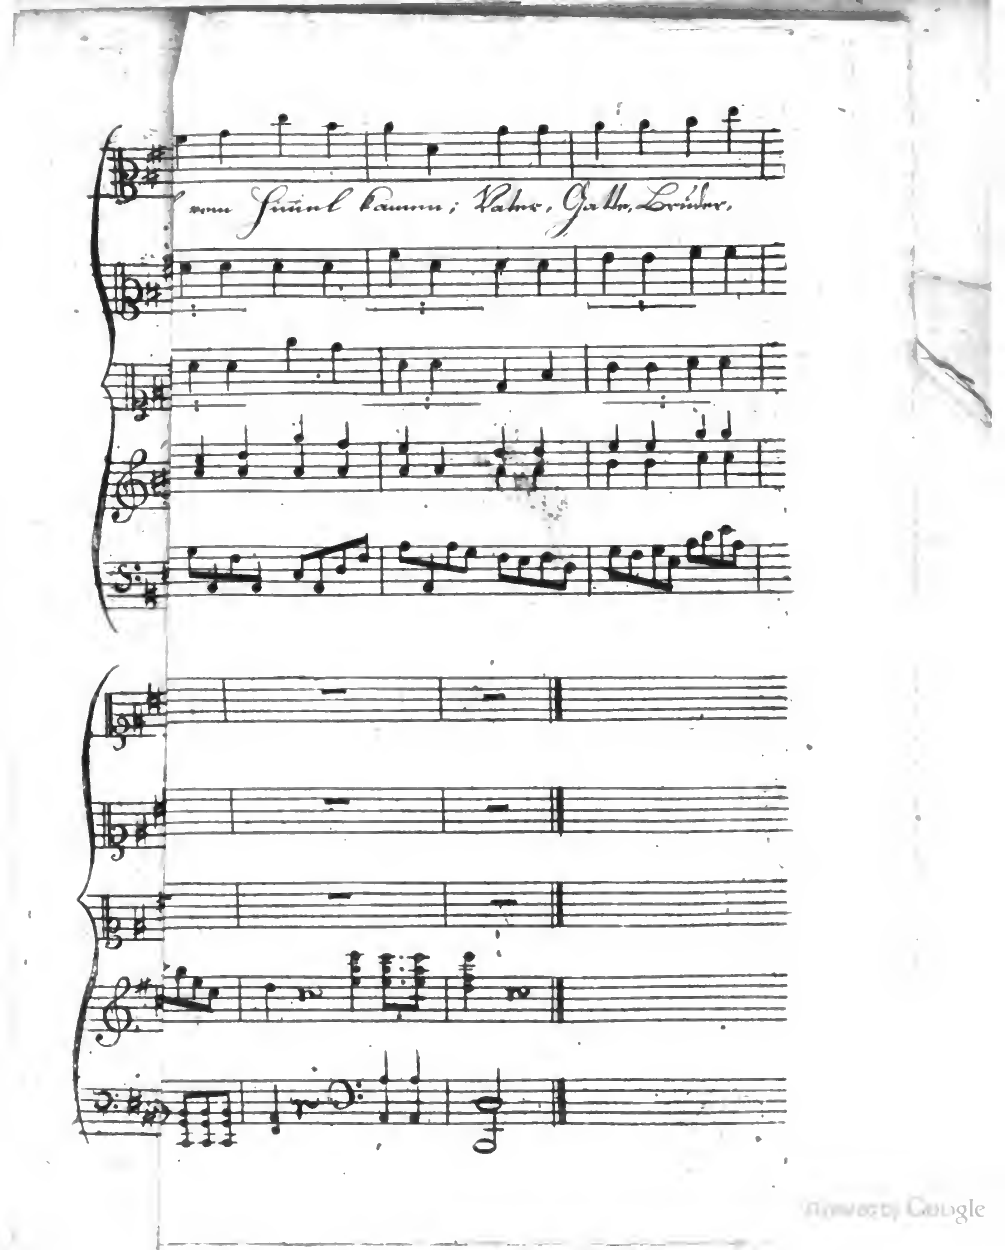 vom Him̄el kamen; Vater, Gatte, Brüder,
Digitized by Google